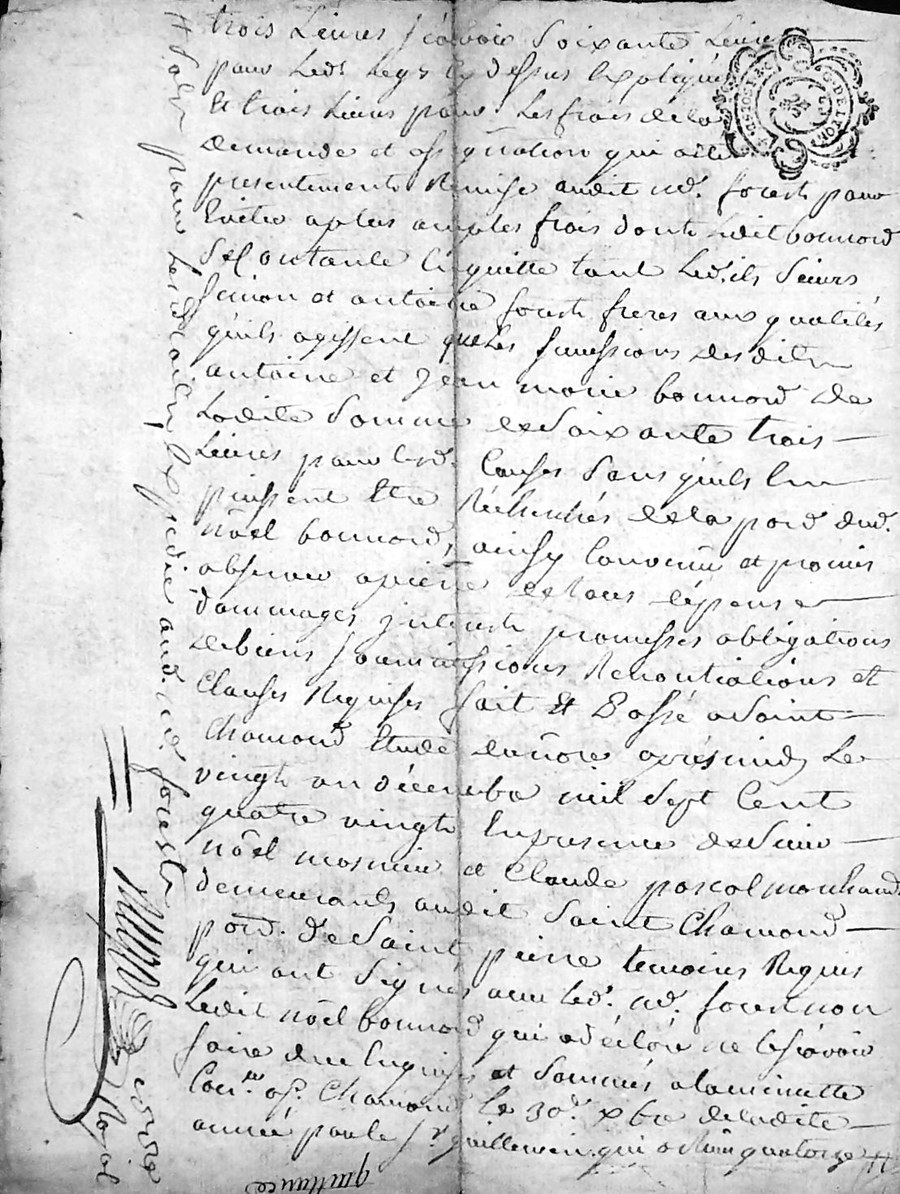 trois Livres sçavoir Soixante Livres
pour led. Legs cy dessus Expliqué
Et trois Livres pour Les frais de la
demande et assignation qui a été
presentement Remise audit Md. forest pour
Eviter a plus amples frais dont Ledit bonnard
Se Contante Et quitte tant Lesdits Sieurs
Simon et antoine forest freres aux qualités
quils agissent que Les successions desdits
antoine et Jean marie bonnard de
Ladite Somme de Soixante trois
Livres pour lesd. Causes Sans quils En
puissent Etre Recherchés de la part dud.
Nôel bonnard, ainsy Convenu et promis
observer a peine de tous dépens
dommages interests promesses obligations
de biens Soumissions Renontiations et
Clauses Requises fait Et Passé a Saint
Chamond Etude du nôre aprés midy Le
vingt un décembre mil Sept Cent
quatre vingt En presence de Sieur
Nôel et Claude pascal marchand
demeurants audit Saint Chamond
par. de Saint pierre temoins Requis
qui ont Signés avec led. Md. forest non
Ledit Nôel bonnard qui a déclaré ne le sçavoir
faire de ce Enquis et Sommés a la minutte
Con.lée a St. Chamond le 30e. Xbre de ladite
année par le Sr. guillemin qui a Reçu quatorze
G. DE LYON
quittance